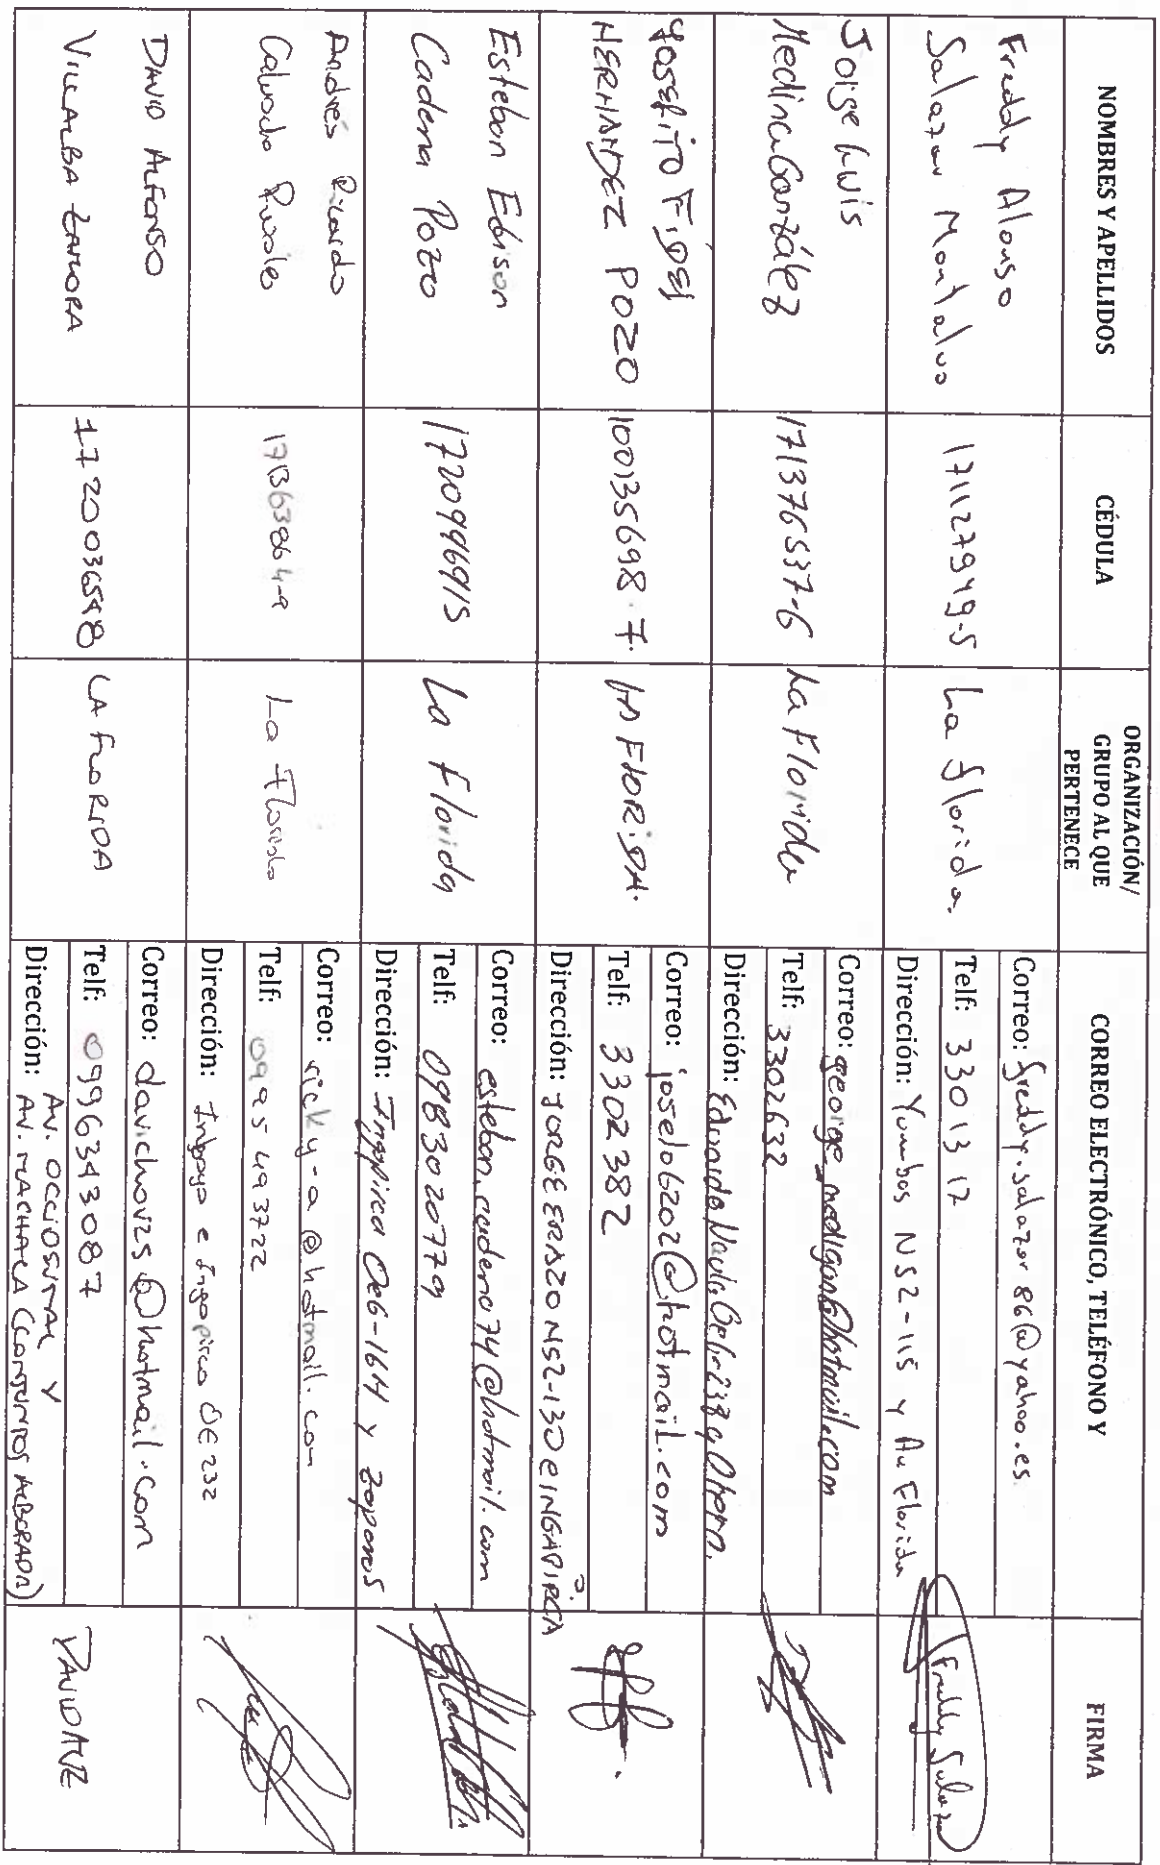 NOMBRES Y APELLIDOS
CÉDULA
ORGANIZACIÓN/
GRUPO AL QUE
PERTENECE
CORREO ELECTRÓNICO, TELÉFONO Y
FIRMA
Freddy Alonso
Salazar Montalvo
171127949-5
La florida.
Correo: freddy.salazar86@yahoo.es
Telf: 3301317
Dirección: Yumbos N52-115 y Av Florida
Freddy Salazar
Jorge Luis
Medina González
171376537-6
La Florida
Correo: george_medigon@hotmail.com
Telf: 3302632
Dirección:
Yossefito Fidel
HERNANDEZ POZO
100135698-7.
LA FLORIDA.
Correo: joselo6202@hotmail.com
Telf: 3302382
Dirección: JORGE ERAZO N52-130 e INGAPIRCA
Esteban Edison
Cadena Pozo
1720996915
La Florida
Correo: esteban.cadena74@hotmail.com
Telf: 0983020779
Dirección: Ingapirca Oe6-164 y
Andrés Ricardo
La Florida
Correo: ricky-a@hotmail.com
Telf: 0995493722
Dirección: OE232
DAVID ALFONSO
VILLALBA ZAMORA
1720036548
LA FLORIDA
Correo: davichovzs@hotmail.com
Telf: 0996343087
Dirección: AV. OCCIDENTAL Y
AV. MACHALA (CONJUNTOS ALBORADA)
DAVIDAVZ